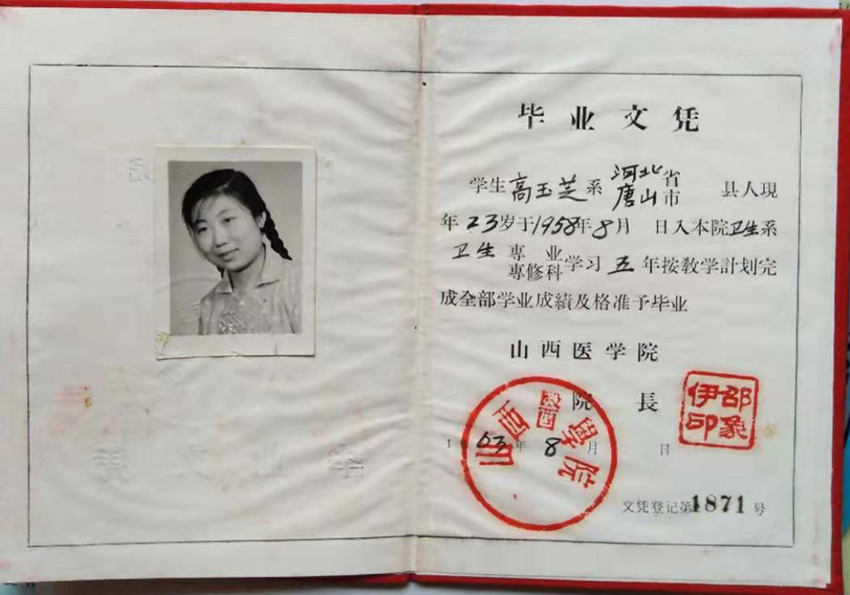 毕业文凭
学生高玉芝系河北省唐山市 县人現
年23岁于1958年8月 日入本院卫生系
卫生专业專修科学习五年按教学計划完
成全部学业成績及格准予毕业
山西医学院
院 長
邵象伊印
山西醫學院
1963年8月 日
文凭登记第1871号